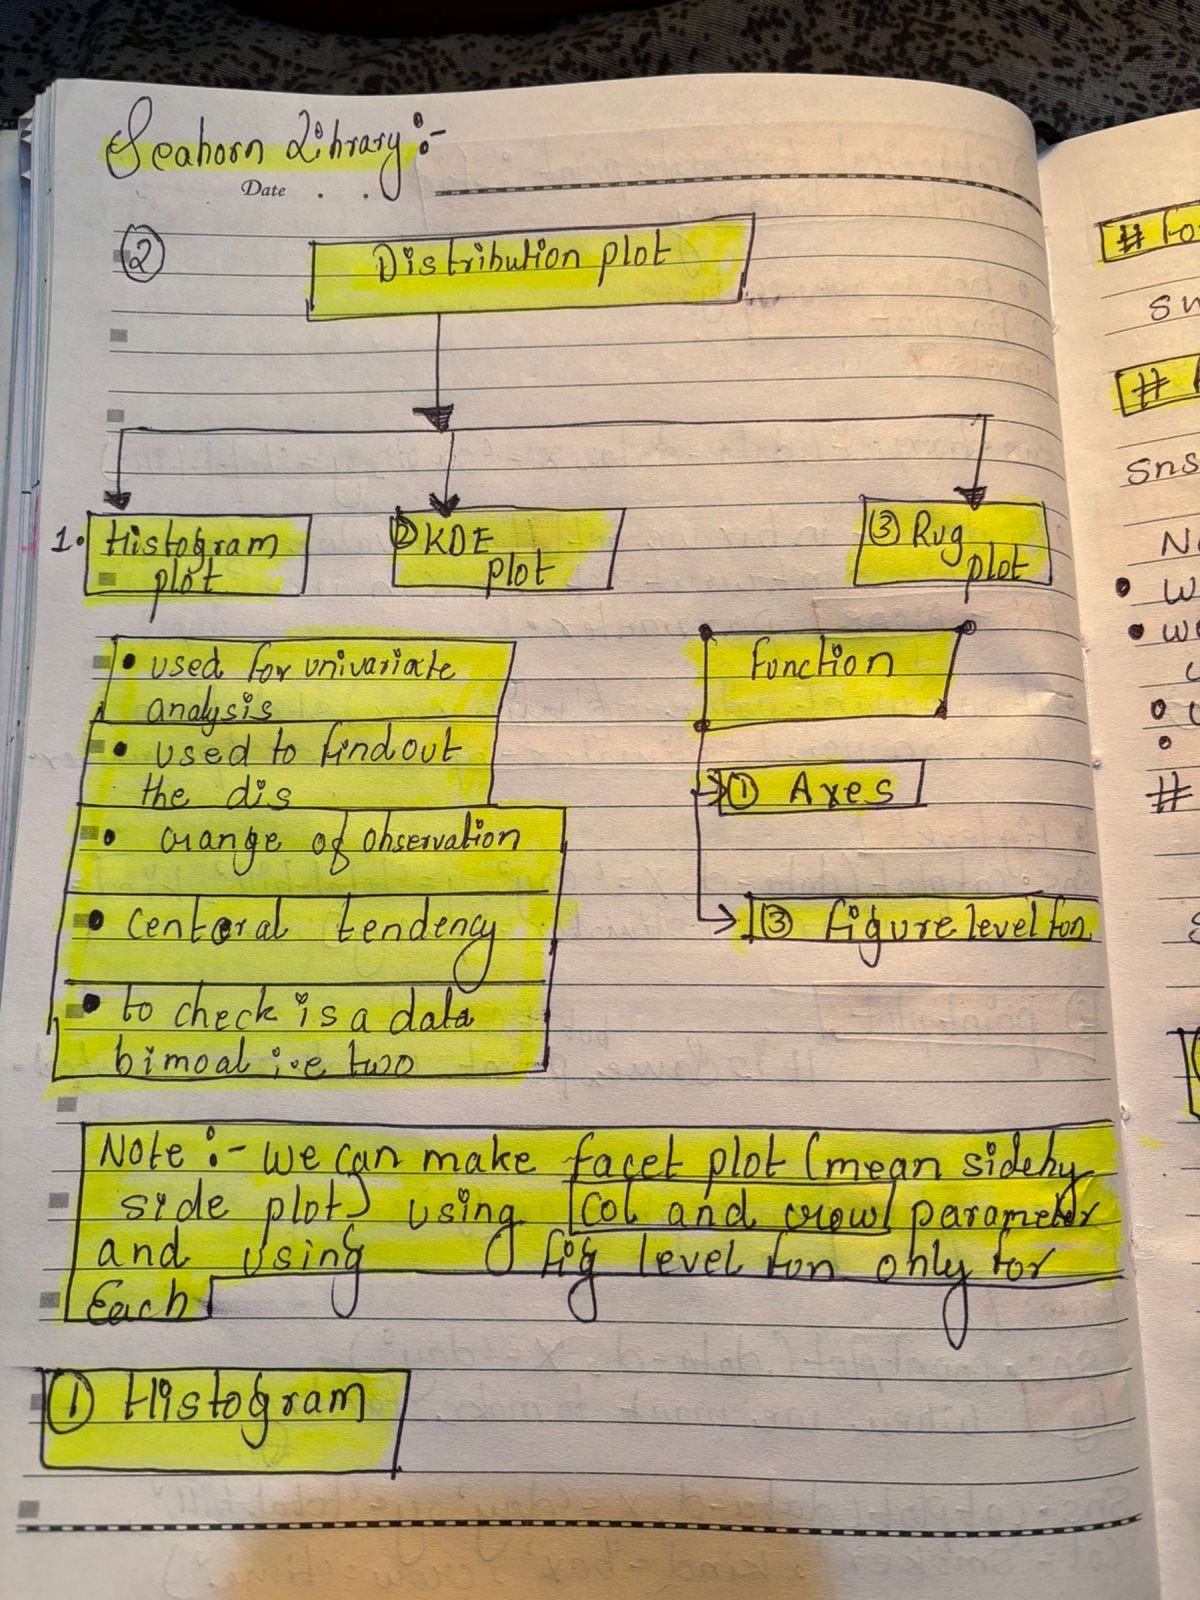 Seaborn Library :-
Date . .
②
Distribution plot
1. Histogram
plot
② KDE
plot
③ Rug
plot
• used for univariate
analysis
• used to findout
the dis
• range of observation
• Centeral tendency
• to check is a data
bimoal i.e two
function
① Axes
③ figure level fon.
Note :- we can make facet plot (mean sideby
side plot) using col and row parameter
and using fig level fon only for
Each
① Histogram
# fo
sn
#
sns
No
• w
• we
•
•
#